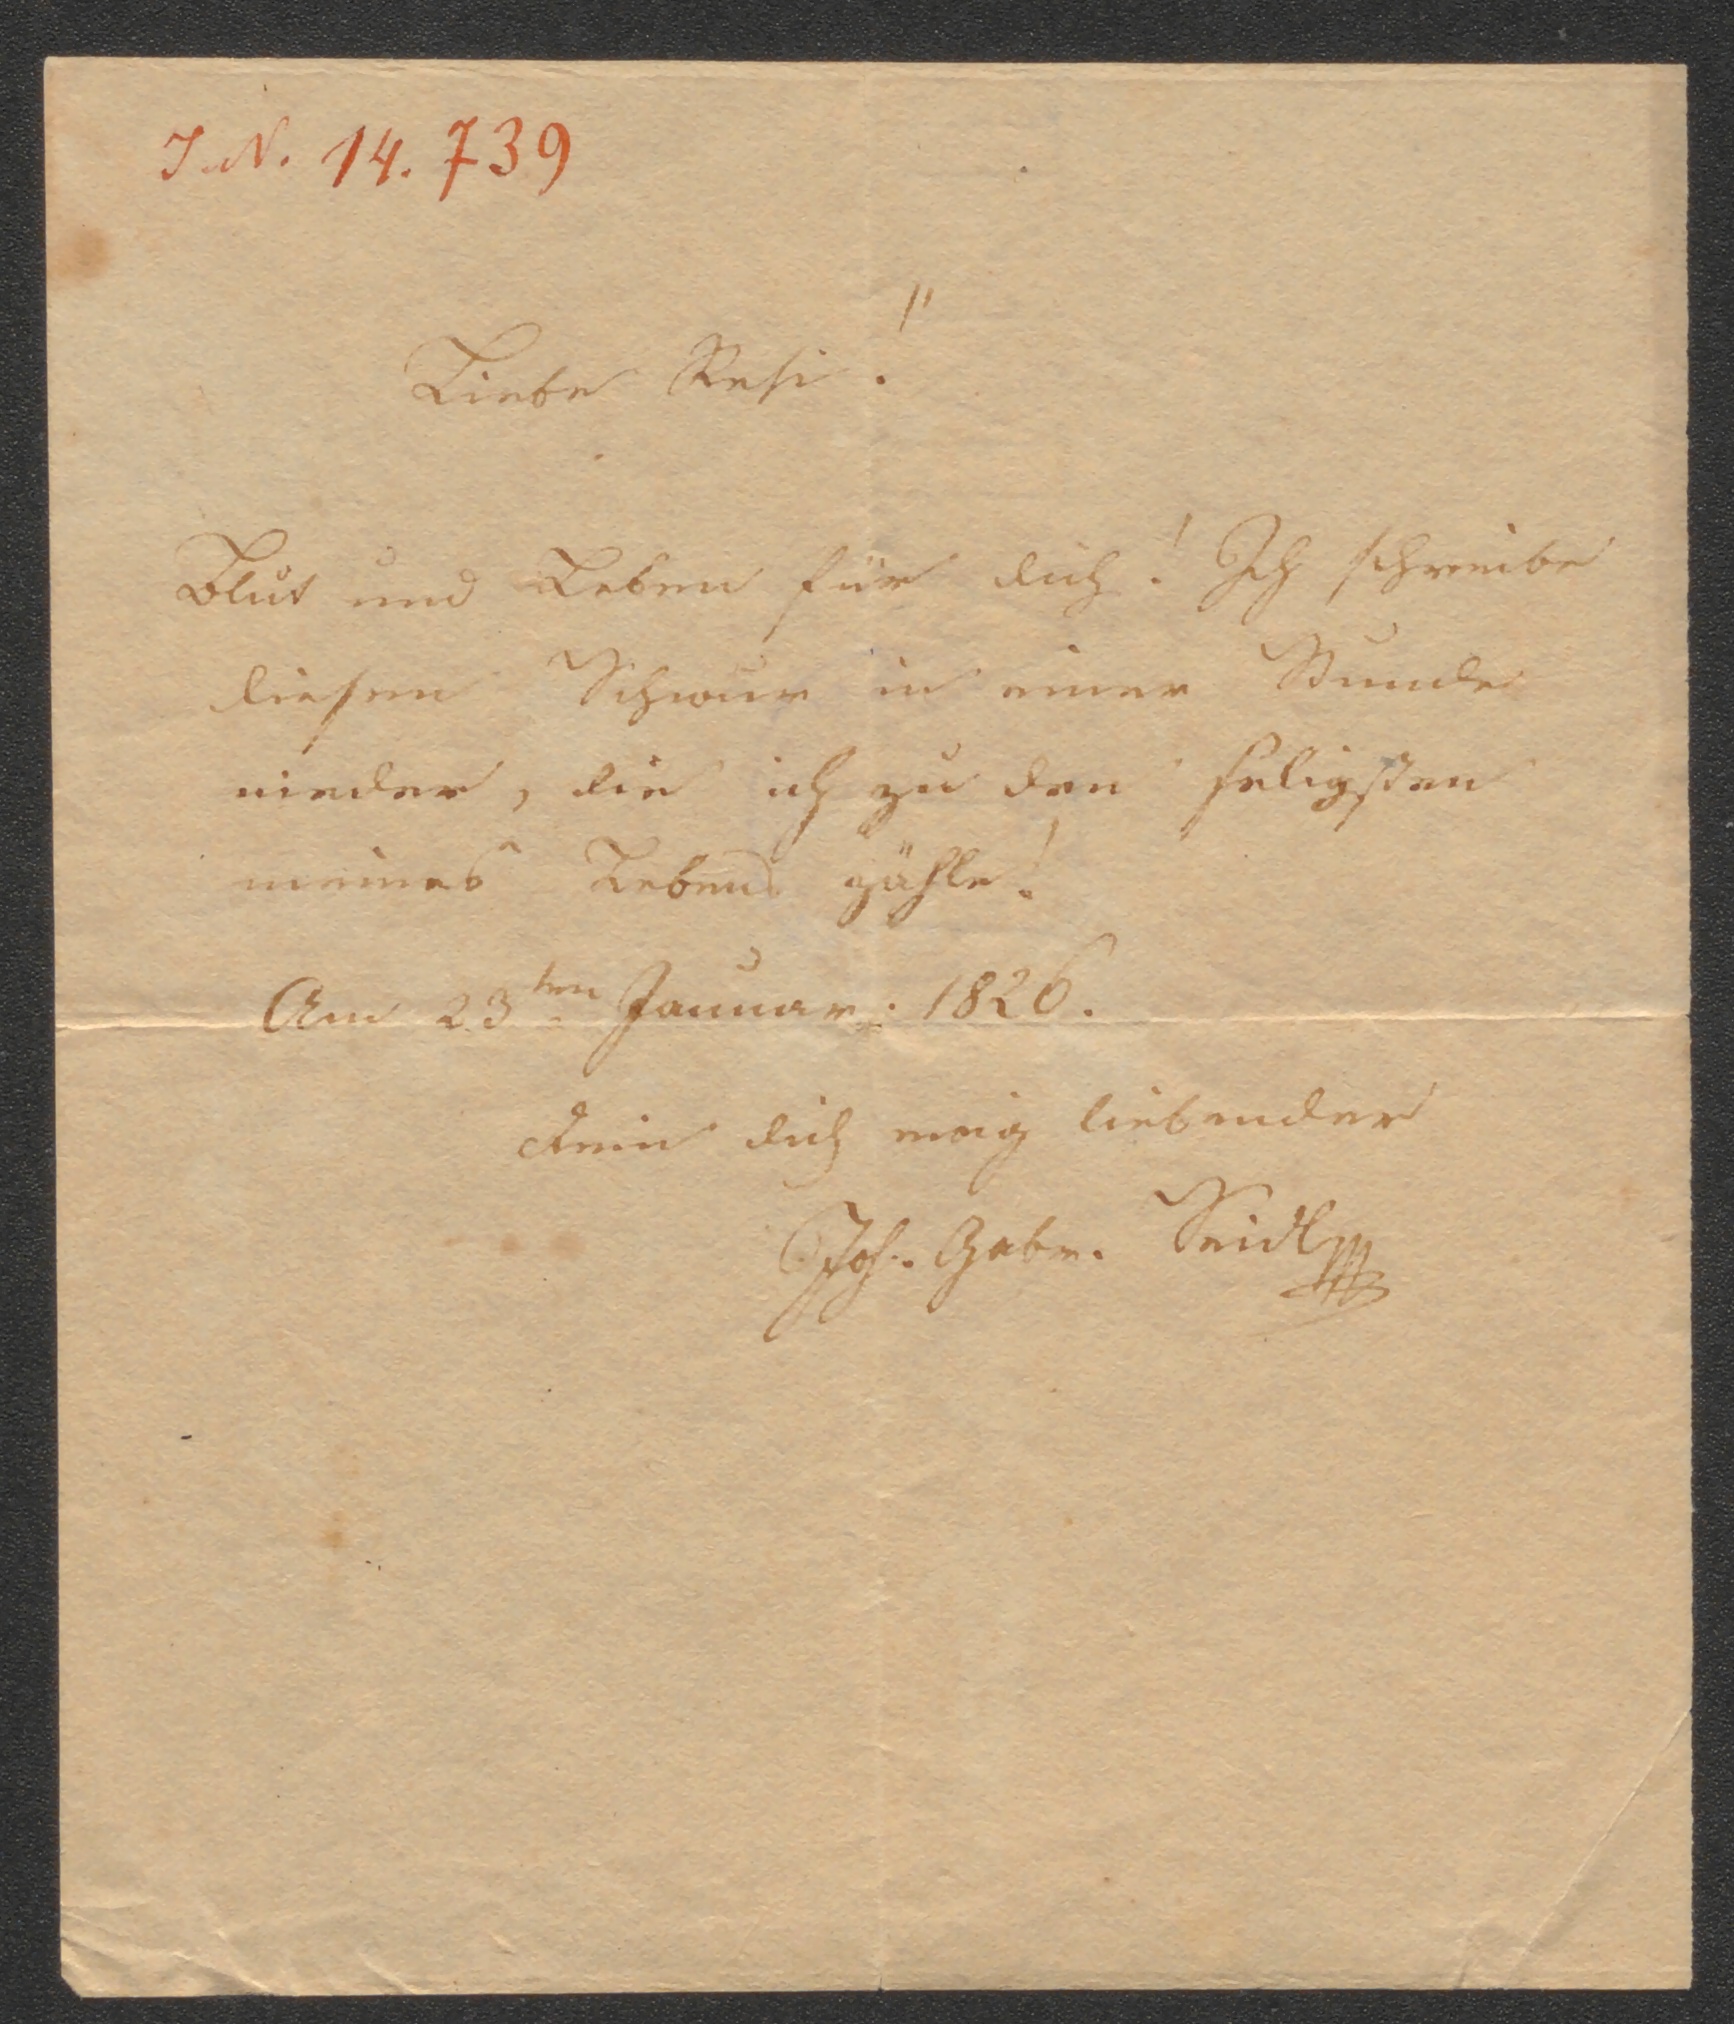 J.N. 14.739
Liebe Resi!"
Blut und Leben für dich! Ich schreibe
diesen Schwur in einer Stunde
nieder, die ich zu den seligsten
meines Lebens zähle!
Am 23ten Januar. 1826.
Dein dich ewig liebender
Joh. Gabr. Seidl